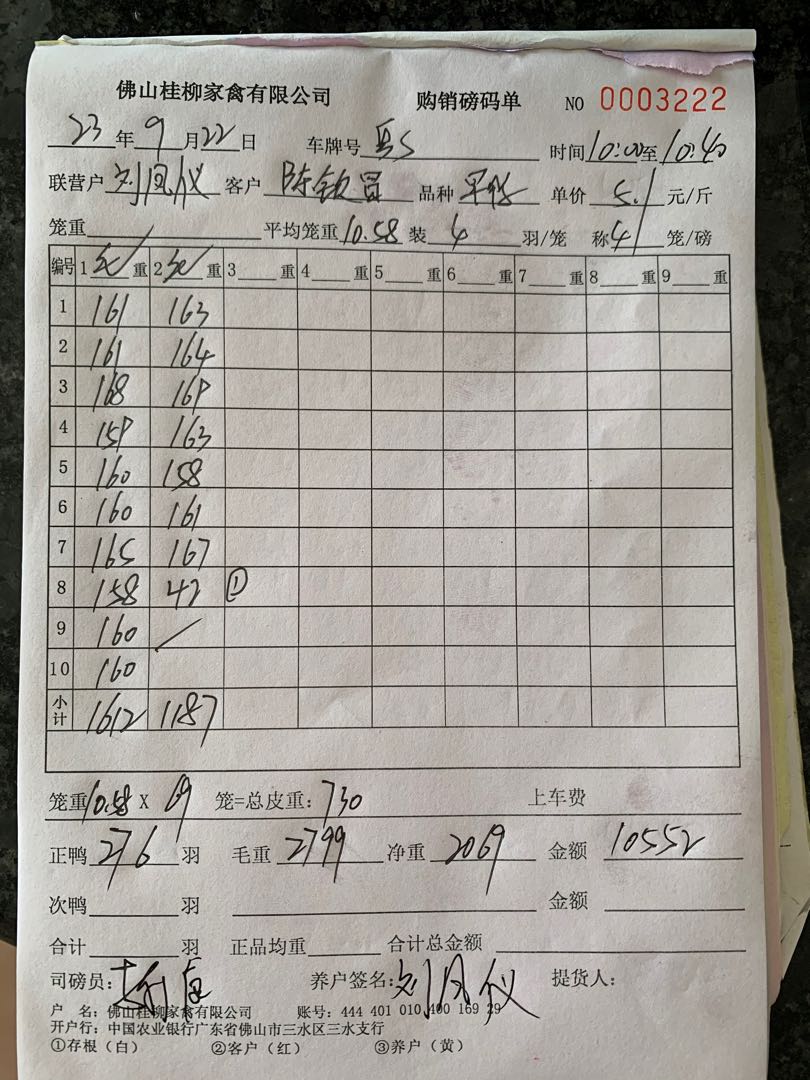 佛山桂柳家禽有限公司 购销磅码单 NO 0003222
23 年 9 月 22 日 车牌号 时间 10:00 至 10:40
联营户 刘凤仪 客户 陈钦昌 品种 单价 5.1 元/斤
笼重 平均笼重 10.58 装 4 羽/笼 称 4 笼/磅
编号 1 毛 重 2 毛 重 3 重 4 重 5 重 6 重 7 重 8 重 9 重
1 161 163
2 161 164
3 168 169
4 159 163
5 160 158
6 160 161
7 165 167
8 158 42 ①
9 160
10 160
小计 1612 1187
笼重 10.58 X 69 笼=总皮重: 730 上车费
正鸭 276 羽 毛重 2799 净重 2069 金额 10552
次鸭 羽 金额
合计 羽 正品均重 合计总金额
司磅员: 养户签名: 刘凤仪 提货人:
户 名: 佛山桂柳家禽有限公司 账号: 444 401 010 400 169 29
开户行: 中国农业银行广东省佛山市三水区三水支行
①存根(白) ②客户(红) ③养户(黄)